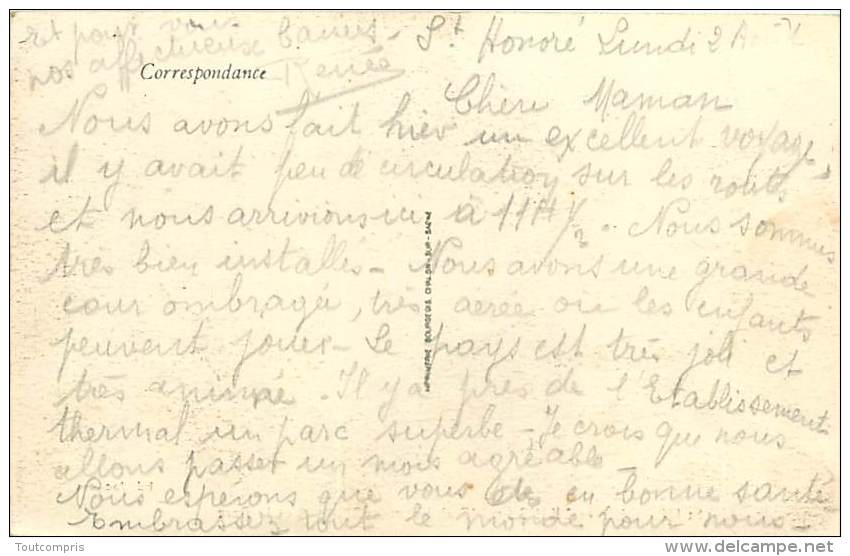 Et pour vous
nos affectueux baisers -
Renée
Correspondance
St Honoré Lundi 2
Chère Maman
Nous avons fait hier un excellent voyage
il y avait peu de circulation sur les routes
et nous arrivions ici à 11H 1/2. Nous sommes
très bien installés - Nous avons une grande
cour ombragée, très aerée ou les enfants
peuvent jouer - Le pays est très joli et
très animé. Il y a près de l'Etablissement
thermal un parc superbe - Je crois que nous
allons passer un mois agréable
Nous esperons que vous etes en bonne santé
Embrassez tout le monde pour nous -
IMPRIMERIE BOURGEOIS CHALON-SUR-SAONE
Toutcompris
www.delcampe.net